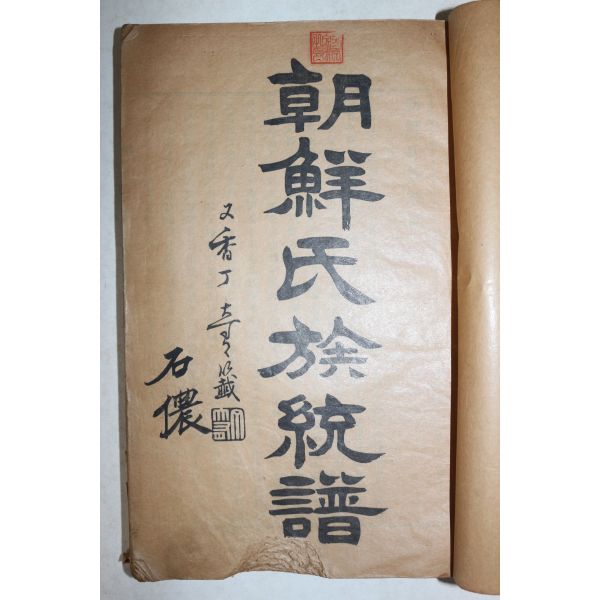 朝鮮氏族統譜
又香丁
石儂